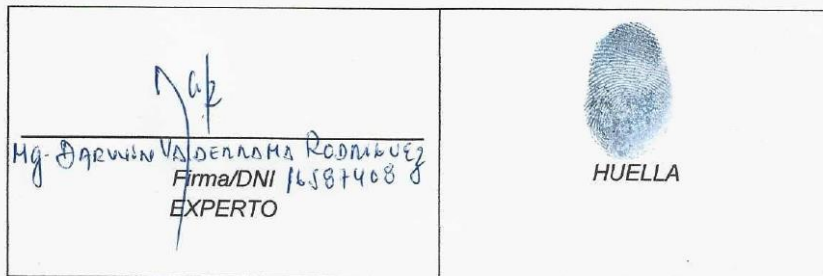 Mg. DARWIN VALDERRAMA RODRIGUEZ
Firma/DNI 16587408
EXPERTO
HUELLA